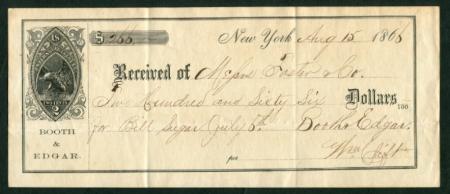 $ 266
New York Aug 15 1866
Received of Messrs Foster & Co.
Two Hundred and Sixty Six Dollars 100
for Bill Sugar July 5th Booth & Edgar.
BOOTH
&
EDGAR.
per Wm